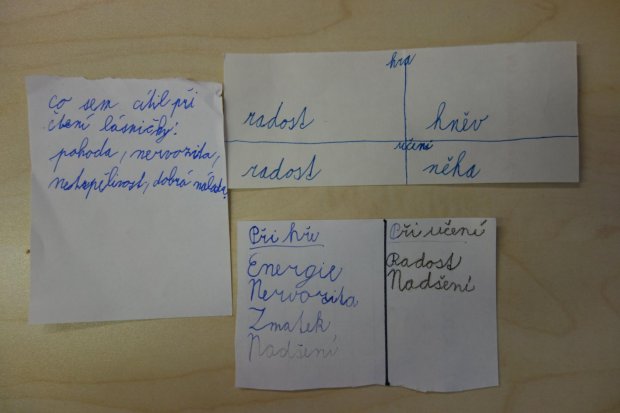 co sem cítil při
čtení básničky:
pohoda, nervozita,
netrpělivost, dobrá nálada.
hra
radost hněv
učení
radost něha
Při hře
Energie
Nervozita
Zmatek
Nadšení
Při učení
Radost
Nadšení